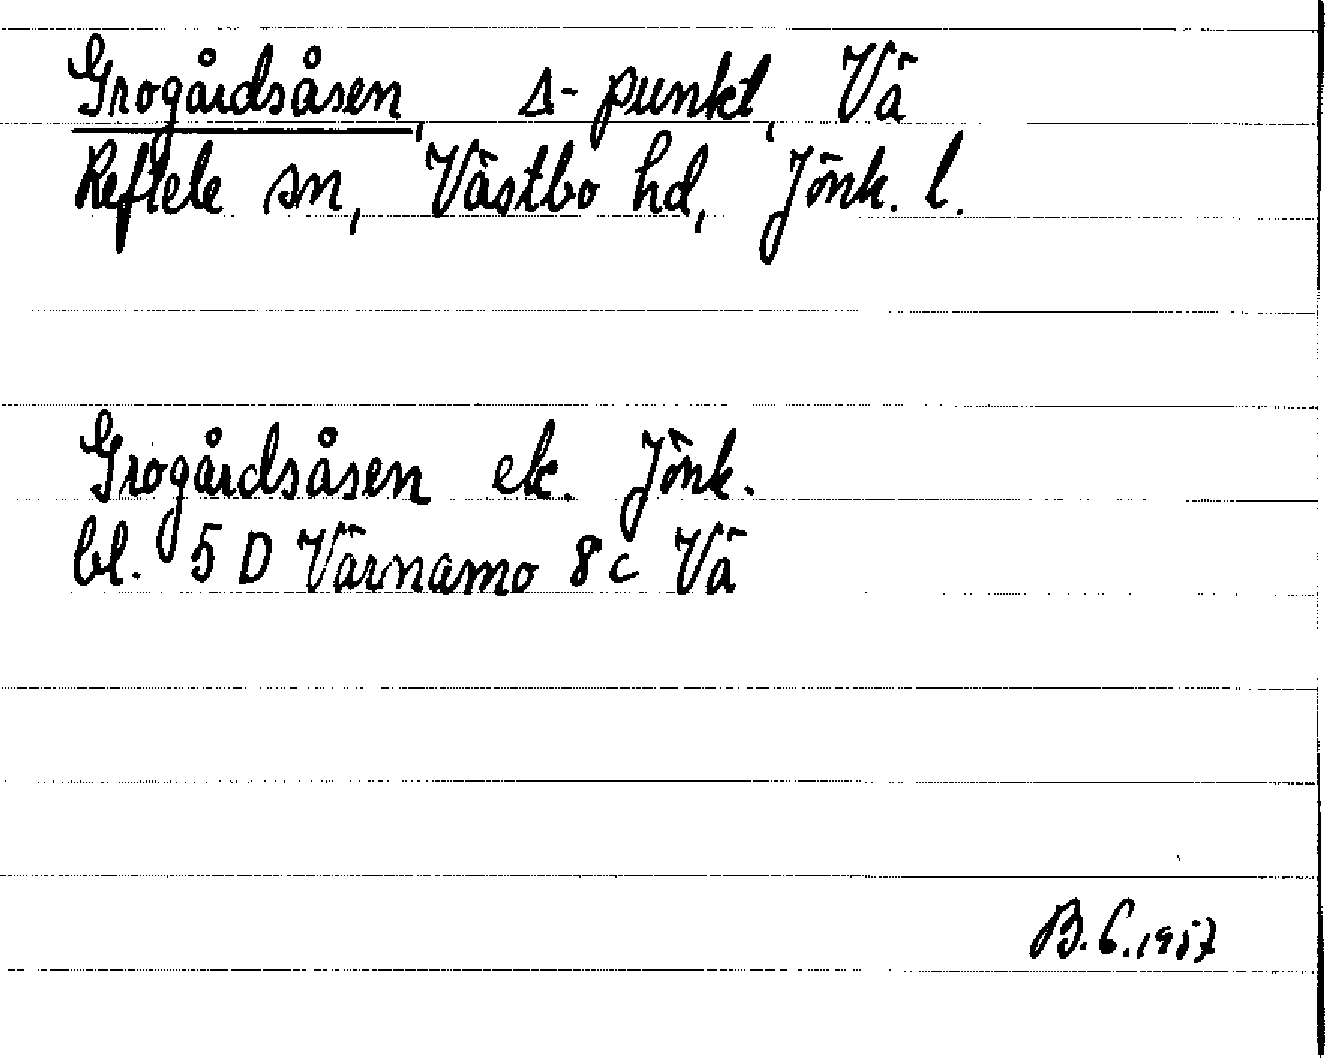 Grogårdsåsen, Δ-punkt, Vä
Reftele sn, Västbo hd, Jönk. l.
Grogårdsåsen ek. Jönk.
bl. 5 D Värnamo 8c Vä
B.C.1957